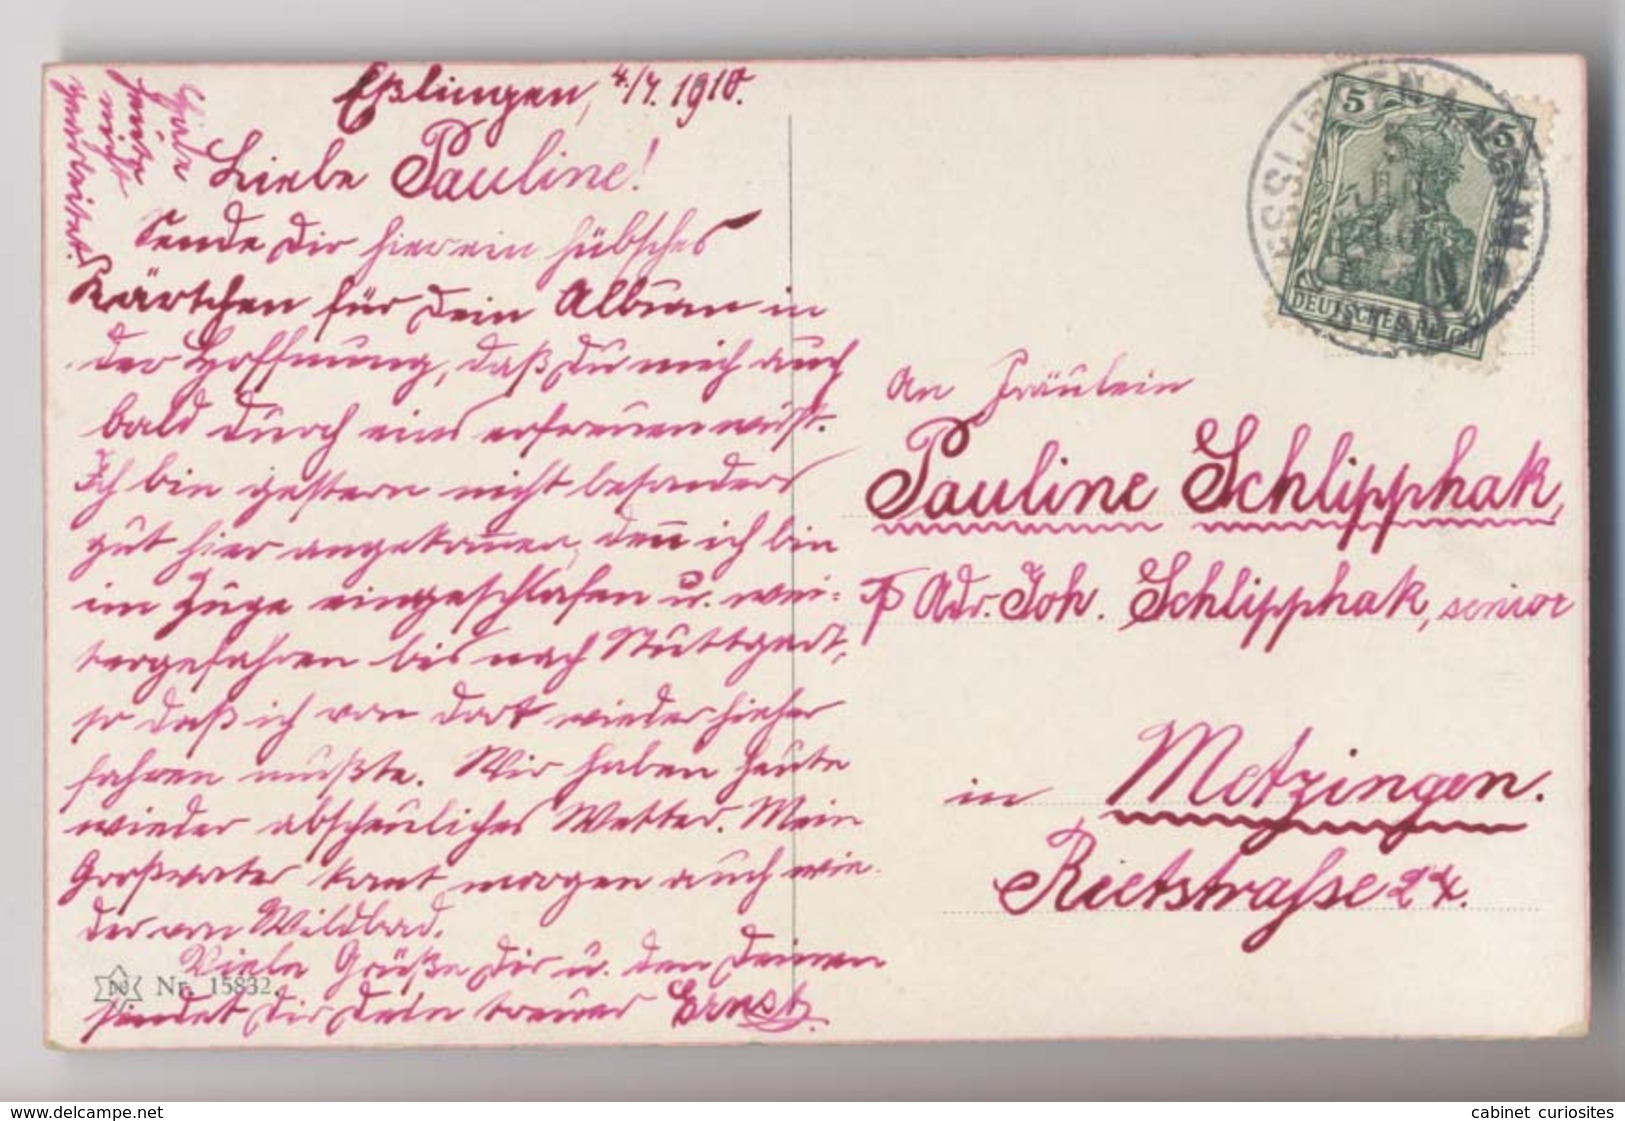 Eßlingen, 4./7. 1910.
Liebe Pauline!
Sende Dir hier ein hübsches
Kärtchen für Dein Album in
der Hoffnung, daß Du mich auch
bald durch eins erfreuen wirst.
Ich bin gestern nicht besonders
gut hier angekom̅en, den̅ ich bin
im Zuge eingeschlafen u. wei-
tergefahren bis nach Stuttgart,
so daß ich von dort wieder hieher
fahren mußte. Wir haben heute
wieder abscheuliches Wetter. Mein
Großvater kom̅t morgen auch wie-
der von Wildbad.
Viele Grüße Dir u. den Deinen
sendet Dir Dein treuer Ernst.
Habe
heute
nicht
gearbeitet.
Nr. 15832.
ESSLINGEN A. NECKAR
5 5
DEUTSCHES REICH
An Fräulein
Pauline Schlipphak,
Adr. Joh. Schlipphak, senior
in Metzingen.
Rietstrasse 24.
www.delcampe.net
cabinet_curiosites